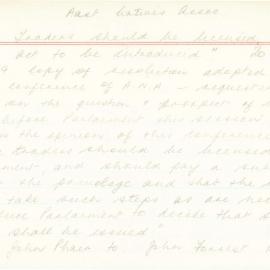 Aust Natives Assoc
Traders should be licensed,
Act to be introduced" to
a copy of resolution adopted
conference of A.N.A - requesting
on the question "prospect of
before Parliament this session
is the opinion of this conference
traders should be licensed
ment, and should pay a su
the privilege and that the
take such steps as are nec
Parliament to decide that s
shall be issued"
John Phair to John Forrest